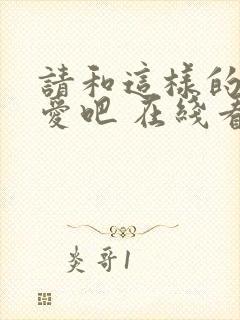 請和這樣的
愛吧 在綫看
炎哥1